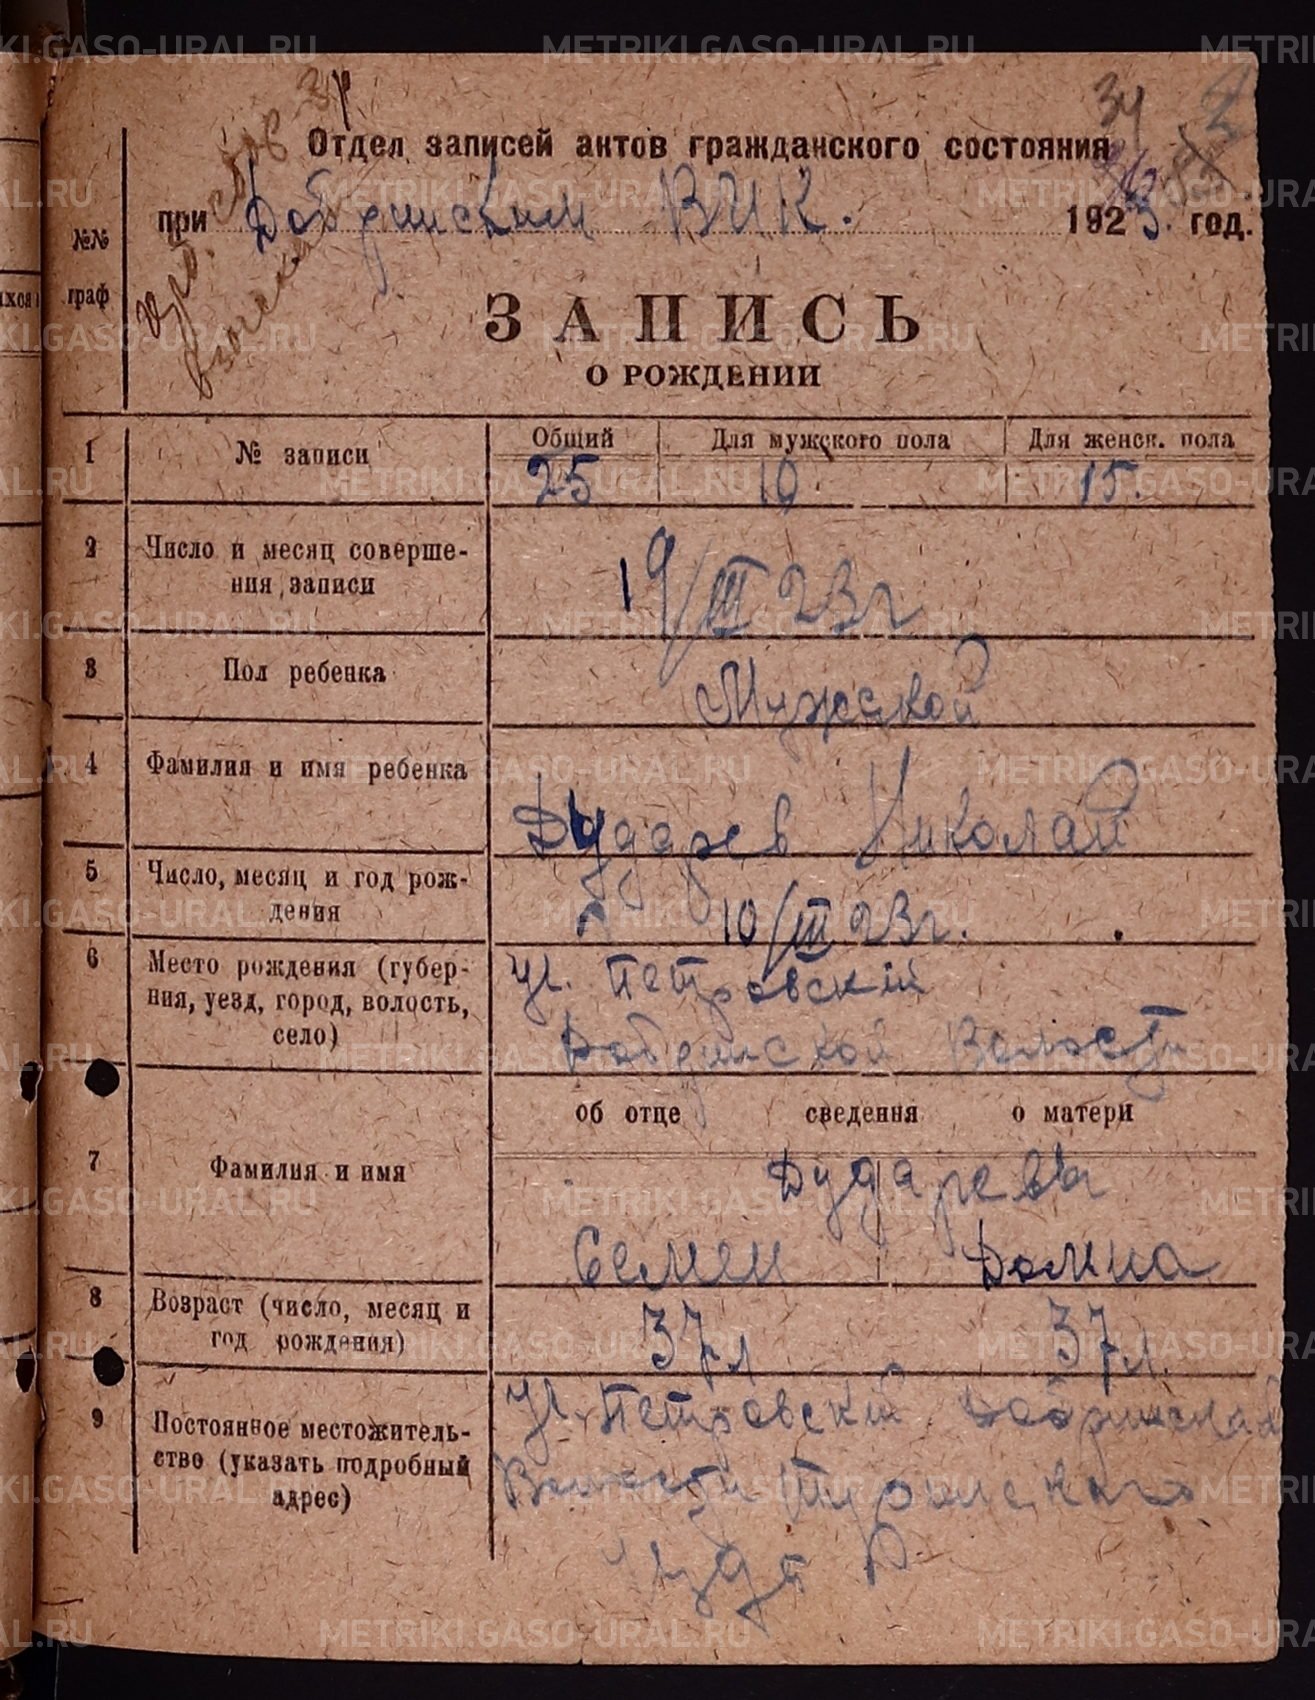 34
Отдел записей актов гражданского состояния
при Добринском ВИК. 1923. год.
№№
граф
ЗАПИСЬ
О РОЖДЕНИИ
1 № записи Общий Для мужского пола Для женск. пола
25 10 15.
2 Число и месяц соверше-
ния записи
19/III 23 г
3 Пол ребенка Мужской
4 Фамилия и имя ребенка
Дударев Николай
5 Число, месяц и год рож-
дения
10/III 23 г.
6 Место рождения (губер-
ния, уезд, город, волость,
село)
Петровскій
Добринской Волости
об отце сведения о матери
7 Фамилия и имя
Дударевы
Семен Домна
8 Возраст (число, месяц и
год рождения)
37 л 37 л.
9 Постоянное местожитель-
ство (указать подробный
адрес)
Петровскій Добринской
Волости Туринского
METRIKI.GASO-URAL.RU